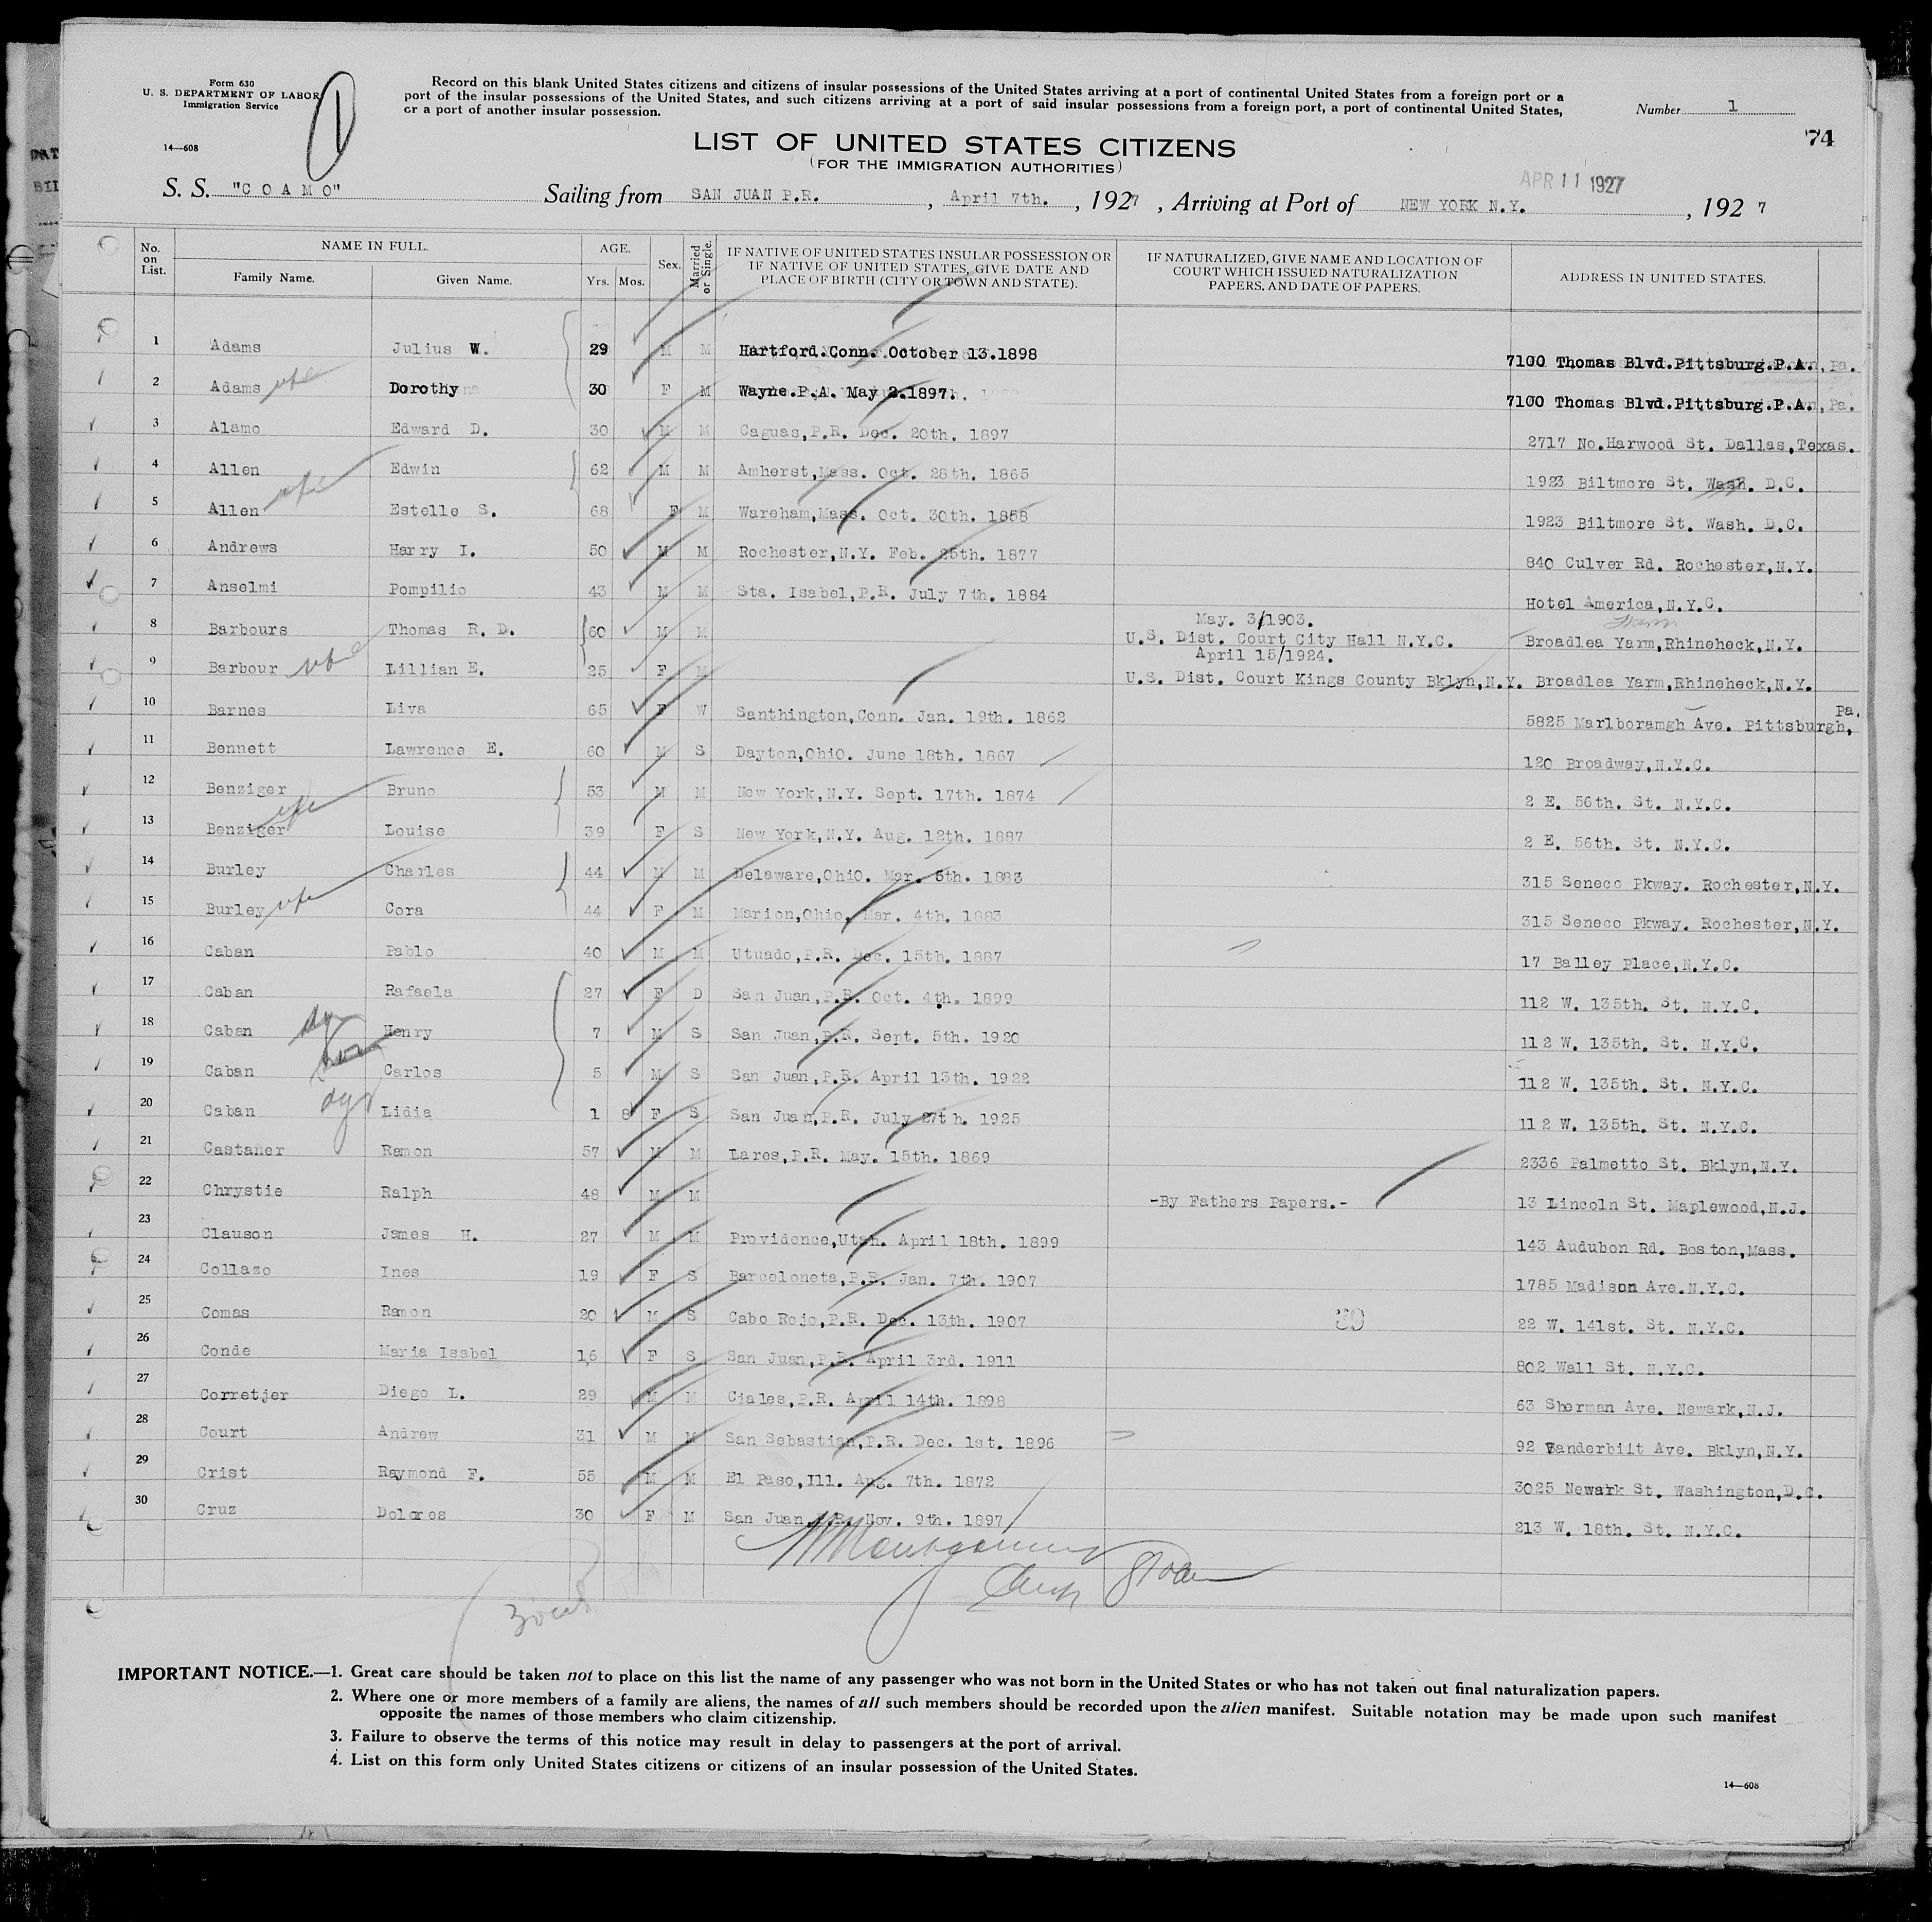 Form 630
U. S. DEPARTMENT OF LABOR
Immigration Service
14—608
Record on this blank United States citizens and citizens of insular possessions of the United States arriving at a port of continental United States from a foreign port or a
port of the insular possessions of the United States, and such citizens arriving at a port of said insular possessions from a foreign port, a port of continental United States,
or a port of another insular possession.
Number 1
74
LIST OF UNITED STATES CITIZENS
(FOR THE IMMIGRATION AUTHORITIES)
APR 11 1927
S. S. "COAMO" Sailing from SAN JUAN P.R. , April 7th. , 1927 , Arriving at Port of NEW YORK N.Y. , 192 7
No. on List. NAME IN FULL. Family Name. Given Name. AGE. Yrs. Mos. Sex. Married or Single. IF NATIVE OF UNITED STATES INSULAR POSSESSION OR IF NATIVE OF UNITED STATES, GIVE DATE AND PLACE OF BIRTH (CITY OR TOWN AND STATE). IF NATURALIZED, GIVE NAME AND LOCATION OF COURT WHICH ISSUED NATURALIZATION PAPERS, AND DATE OF PAPERS. ADDRESS IN UNITED STATES.
1 Adams Julius W. 29 M M Hartford.Conn. October 13.1898 7100 Thomas Blvd.Pittsburg.P.A.
2 Adams wife Dorothy 30 F M Wayne.P.A. May 2.1897. 7100 Thomas Blvd.Pittsburg.P.A.
3 Alamo Edward D. 30 M M Caguas,P.R. Dec. 20th. 1897 2717 No.Harwood St. Dallas,Texas.
4 Allen Edwin 62 M M Amherst,Mass. Oct. 28th. 1865 1923 Biltmore St. Wash. D.C.
5 Allen wife Estelle S. 68 F M Wareham,Mass. Oct. 30th. 1858 1923 Biltmore St. Wash. D.C.
6 Andrews Harry I. 50 M M Rochester,N.Y. Feb. 25th. 1877 840 Culver Rd. Rochester,N.Y.
7 Anselmi Pompilio 43 M M Sta. Isabel,P.R. July 7th. 1884 Hotel America,N.Y.C.
8 Barbours Thomas R. D. 60 M M May. 3/1903. U.S. Dist. Court City Hall N.Y.C. Broadlea Yarm,Rhineheck,N.Y.
9 Barbour wife Lillian E. 25 F M April 15/1924. U.S. Dist. Court Kings County Bklyn,N.Y. Broadlea Yarm,Rhineheck,N.Y.
10 Barnes Liva 65 F W Santhington,Conn. Jan. 19th. 1862 5825 Marlboramgh Ave. Pittsburgh, Pa.
11 Bennett Lawrence E. 60 M S Dayton,OhiO. June 18th. 1867 120 Broadway,N.Y.C.
12 Benziger Bruno 53 M M New York,N.Y. Sept. 17th. 1874 2 E. 56th. St. N.Y.C.
13 Benziger wife Louise 39 F S New York,N.Y. Aug. 12th. 1887 2 E. 56th. St. N.Y.C.
14 Burley Charles 44 M M Delaware,OhiO. Mar. 5th. 1883 315 Seneco Pkway. Rochester,N.Y.
15 Burley wife Cora 44 F M Marion,Ohio, Mar. 4th. 1883 315 Seneco Pkway. Rochester,N.Y.
16 Caban Pablo 40 M M Utuado,P.R. Dec. 15th. 1887 17 Balley Place,N.Y.C.
17 Caban Rafaela 27 F D San Juan,P.R. Oct. 4th. 1899 112 W. 135th. St. N.Y.C.
18 Caban Henry 7 M S San Juan,P.R. Sept. 5th. 1920 112 W. 135th. St. N.Y.C.
19 Caban son Carlos 5 M S San Juan,P.R. April 13th. 1922 112 W. 135th. St. N.Y.C.
20 Caban Lidia 1 8 F S San Juan,P.R. July 27th. 1925 112 W. 135th. St. N.Y.C.
21 Castaner Ramon 57 M M Lares,P.R. May. 15th. 1869 2336 Palmetto St. Bklyn,N.Y.
22 Chrystie Ralph 48 M M -By Fathers Papers.- 13 Lincoln St. Maplewood,N.J.
23 Clauson James H. 27 M M Providence,Utah. April 18th. 1899 143 Audubon Rd. Boston,Mass.
24 Collazo Ines 19 F S Barceloneta,P.R. Jan. 7th. 1907 1785 Madison Ave.N.Y.C.
25 Comas Ramon 20 M S Cabo Rojo,P.R. Dec. 13th. 1907 22 W. 141st. St. N.Y.C.
26 Conde Maria Isabel 16 F S San Juan,P.R. April 3rd. 1911 802 Wall St. N.Y.C.
27 Corretjer Diego L. 29 M M Ciales,P.R. April 14th. 1898 63 Sherman Ave. Newark,N.J.
28 Court Andrew 31 M M San Sebastian,P.R. Dec. 1st. 1896 92 Vanderbilt Ave. Bklyn,N.Y.
29 Crist Raymond F. 55 M M El Paso,Ill. Aug. 7th. 1872 3025 Newark St. Washington,D.C.
30 Cruz Dolores 30 F M San Juan,P.R. Nov. 9th. 1897 213 W. 18th. St. N.Y.C.
IMPORTANT NOTICE.—1. Great care should be taken not to place on this list the name of any passenger who was not born in the United States or who has not taken out final naturalization papers.
2. Where one or more members of a family are aliens, the names of all such members should be recorded upon the alien manifest. Suitable notation may be made upon such manifest
opposite the names of those members who claim citizenship.
3. Failure to observe the terms of this notice may result in delay to passengers at the port of arrival.
4. List on this form only United States citizens or citizens of an insular possession of the United States.
14—608